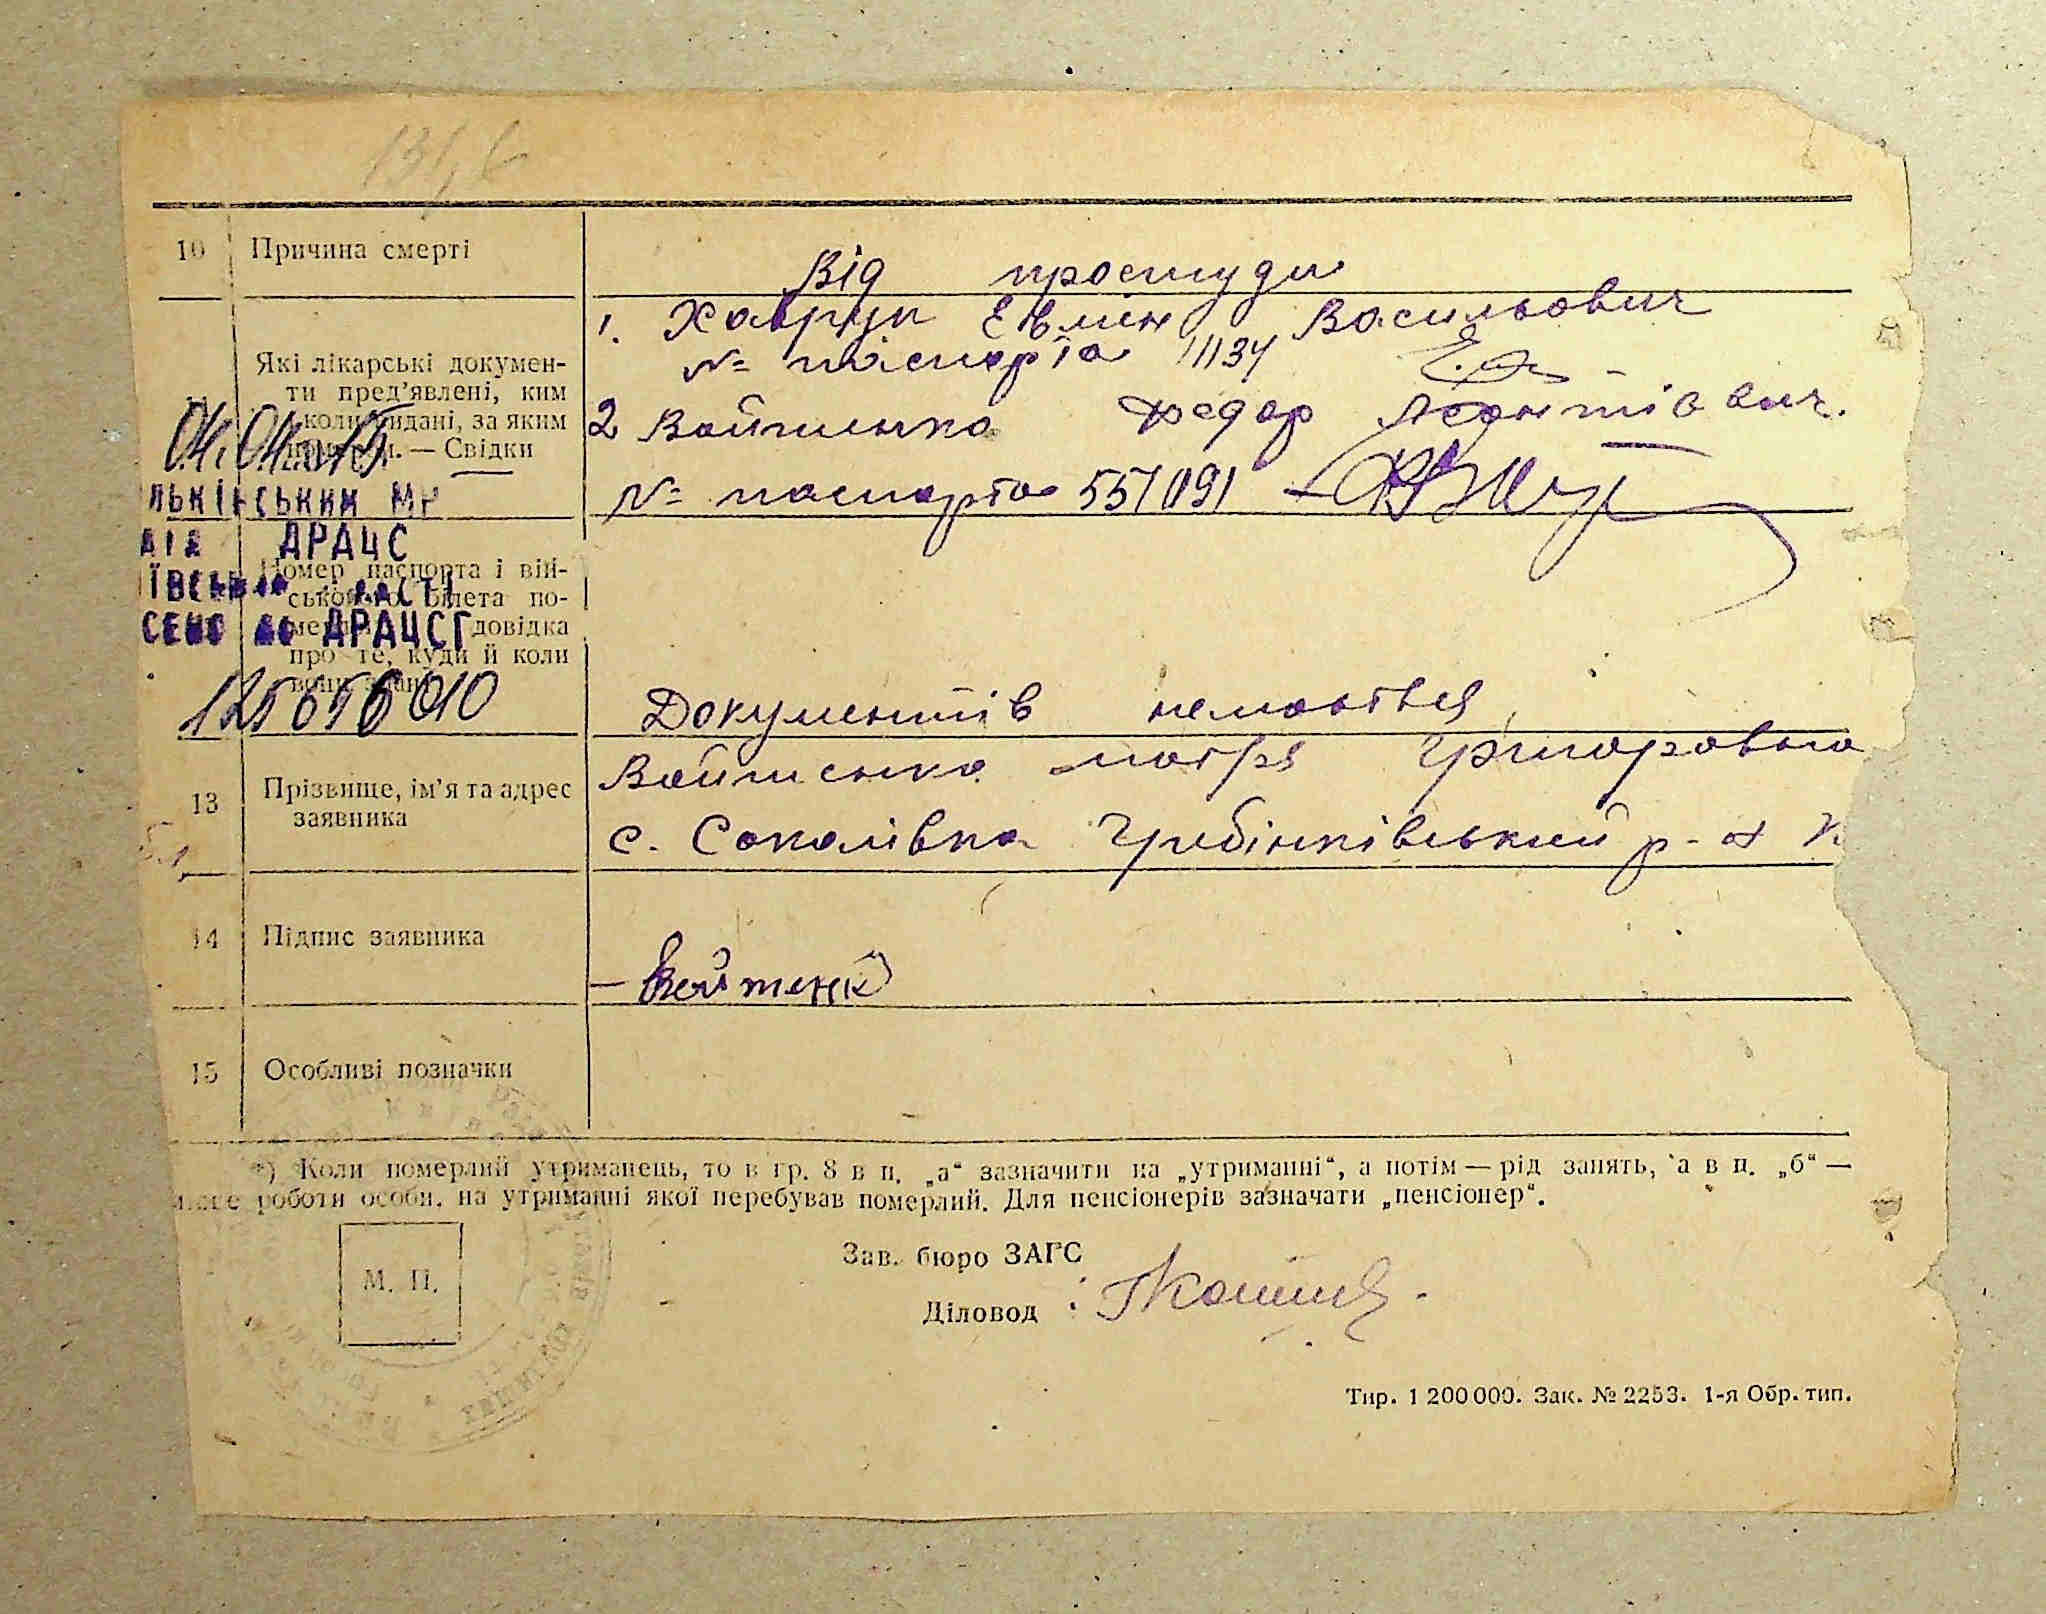 10 Причина смерті
Від простуди
Які лікарські докумен-
ти пред'явлені, ким
і коли видані, за яким
номером. — Свідки
1. Хаврук Евмен Васильович
№ паспорта 111134
2 Войтенко Федор Леонтієвич.
№ паспорта 551091
04.04.
ДРАЦС
ДРАЦСГ
Номер паспорта і вій-
ськового білета по-
довідка
про те, куди й коли
вони здані
Документів немається
13 Прізвище, ім'я та адрес
заявника
Войтенко Мотря Григоровна
с. Соколівка Гребінківський р-н К
14 Підпис заявника
Войтенк
15 Особливі позначки
*) Коли померлий утриманець, то в гр. 8 в п. „а“ зазначити на „утриманні“, а потім — рід занять, а в п. „б“ —
місце роботи особи, на утриманні якої перебував померлий. Для пенсіонерів зазначати „пенсіонер“.
М. П.
Зав. бюро ЗАГС
Діловод
Тир. 1 200 000. Зак. № 2253. 1-я Обр. тип.